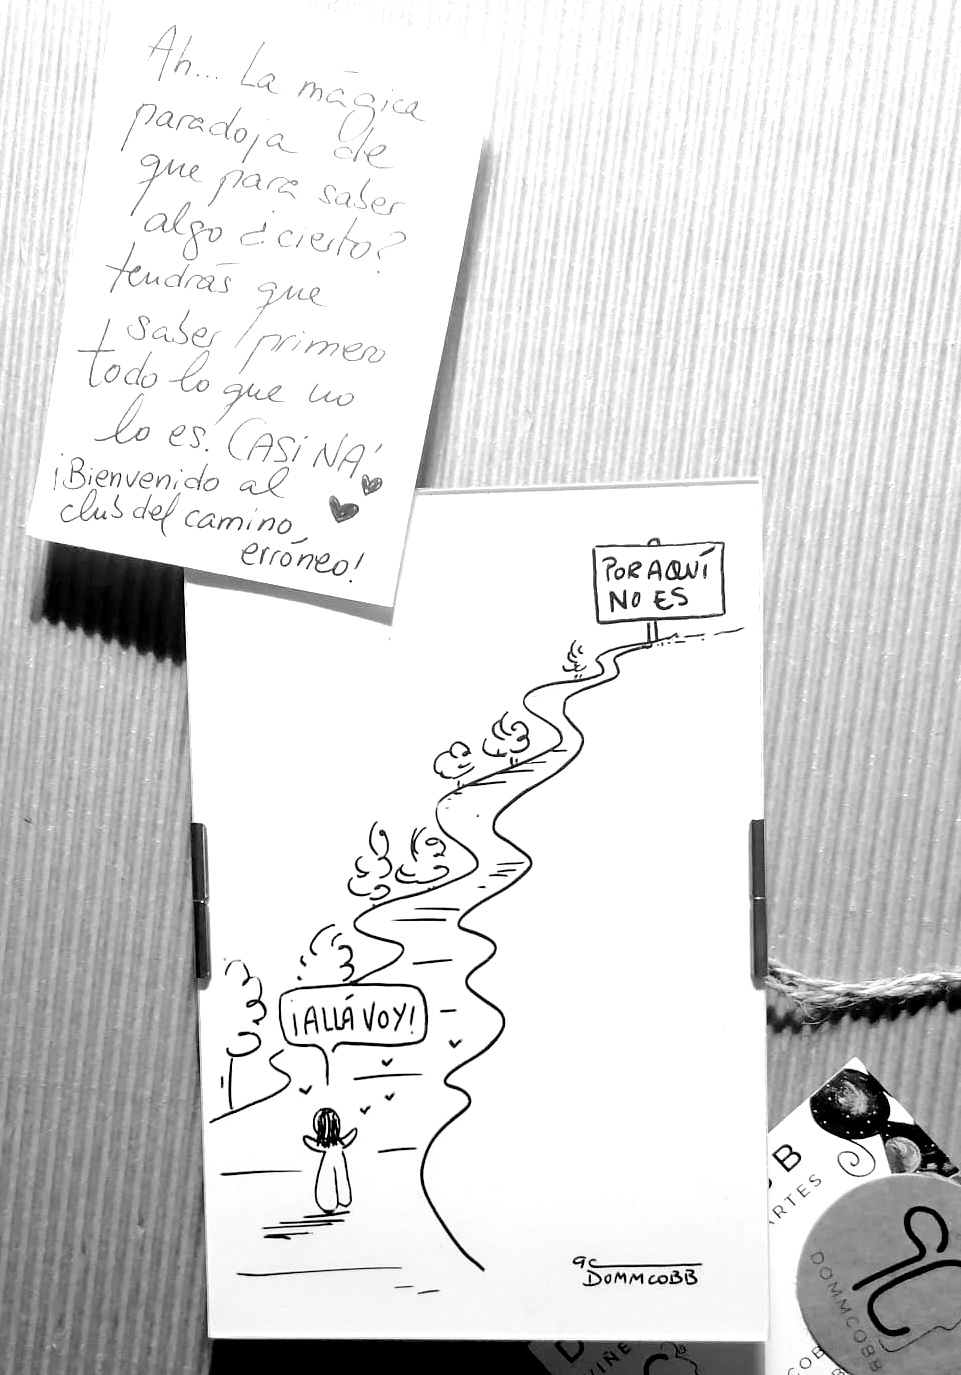 Ah... La mágica
paradoja de
que para saber
algo ¿cierto?
tendrás que
saber primero
todo lo que no
lo es. CASI NÁ
¡Bienvenido al
club del camino
erróneo!
POR AQUÍ
NO ES
¡ALLÁ VOY!
DOMMCOBB
BB
ARTES
DOMMCOBB